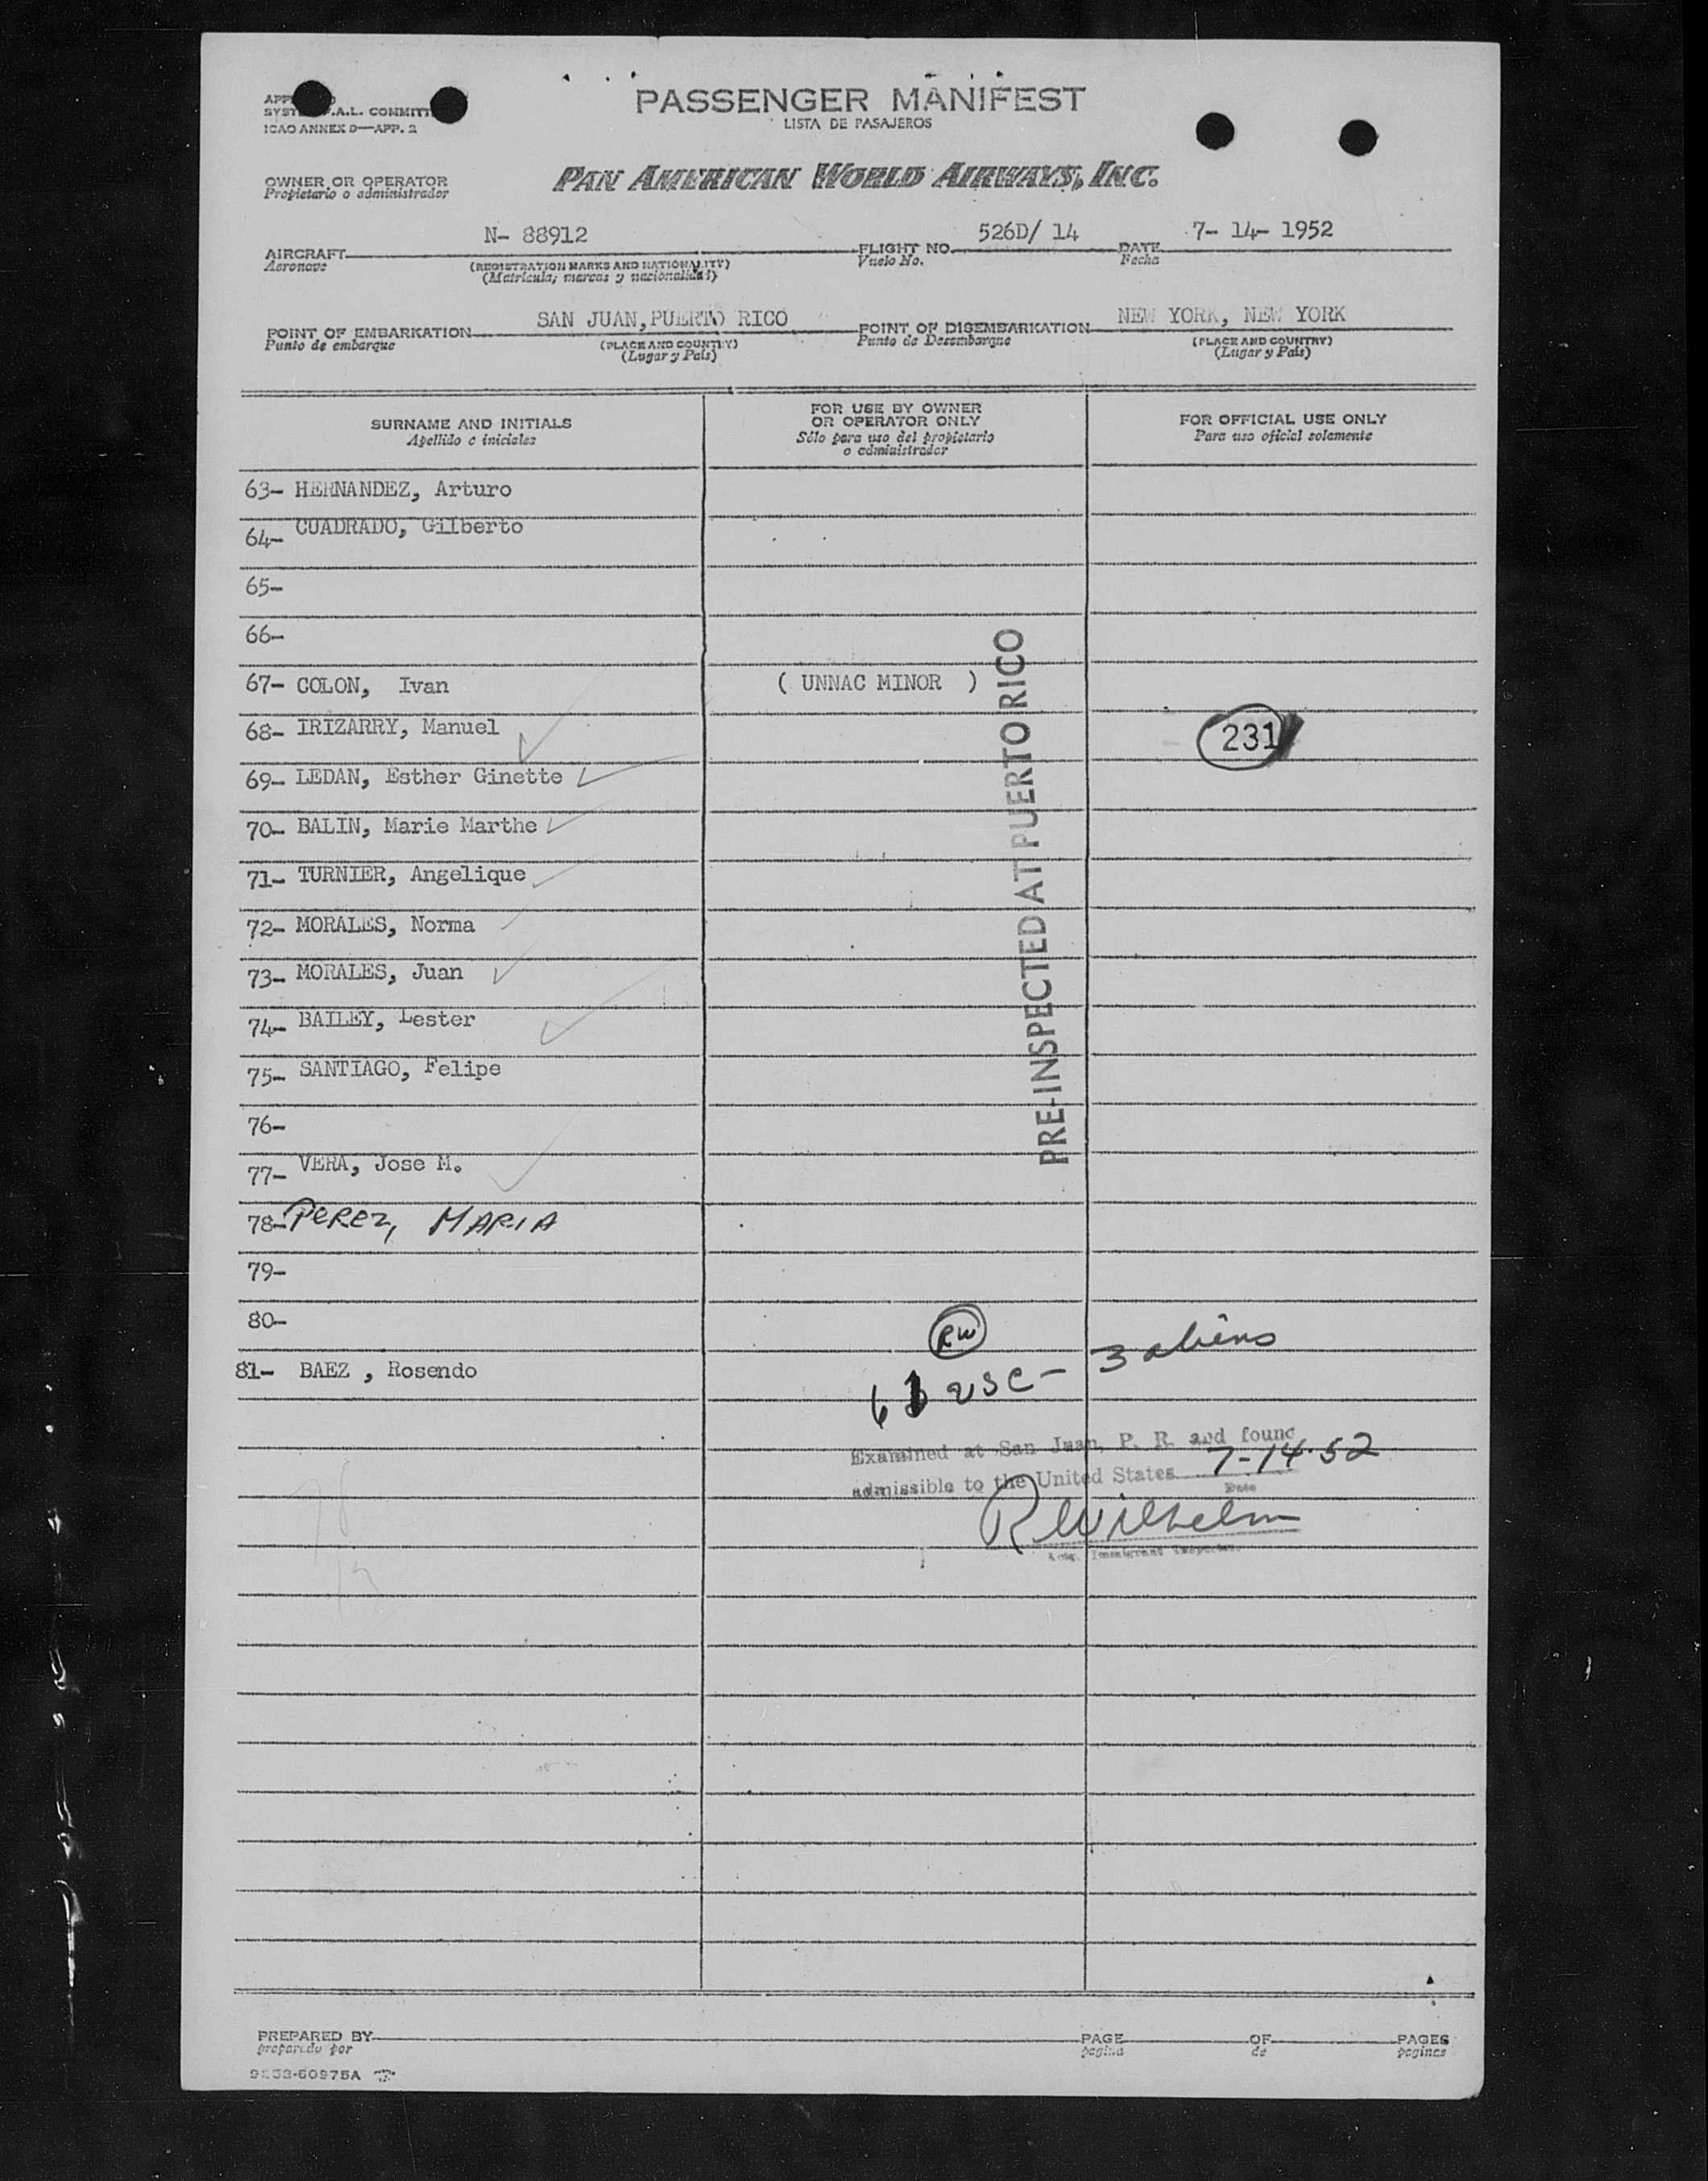 PASSENGER MANIFEST
LISTA DE PASAJEROS
SYST .A.L. COMMITT
ICAO ANNEX 9—APP. 2
OWNER OR OPERATOR
Propietario o administrador
PAN AMERICAN WORLD AIRWAYS, INC.
AIRCRAFT N- 88912 FLIGHT NO. 526D/ 14 DATE 7- 14- 1952
Aeronave (REGISTRATION MARKS AND NATIONALITY) Vuelo No. Fecha
(Matrícula; marcas y nacionalidad)
POINT OF EMBARKATION SAN JUAN, PUERTO RICO POINT OF DISEMBARKATION NEW YORK, NEW YORK
Punto de embarque (PLACE AND COUNTRY) Punto de Desembarque (PLACE AND COUNTRY)
(Lugar y País) (Lugar y País)
SURNAME AND INITIALS
Apellido e iniciales
FOR USE BY OWNER
OR OPERATOR ONLY
Sólo para uso del propietario
o administrador
FOR OFFICIAL USE ONLY
Para uso oficial solamente
63- HERNANDEZ, Arturo
64- CUADRADO, Gilberto
65-
66-
67- COLON, Ivan ( UNNAC MINOR )
68- IRIZARRY, Manuel 231
69- LEDAN, Esther Ginette
70- BALIN, Marie Marthe
71- TURNIER, Angelique
72- MORALES, Norma
73- MORALES, Juan
74- BAILEY, Lester
75- SANTIAGO, Felipe
76-
77- VERA, Jose M.
78- PEREZ, MARIA
79-
80-
81- BAEZ , Rosendo
PRE-INSPECTED AT PUERTO RICO
RW
61 USC - 3 aliens
Examined at San Juan, P. R. and found
admissible to the United States 7-14-52
Date
R Wilhelm
Actg. Immigrant Inspector
PREPARED BY PAGE OF PAGES
preparado por pagina de paginas